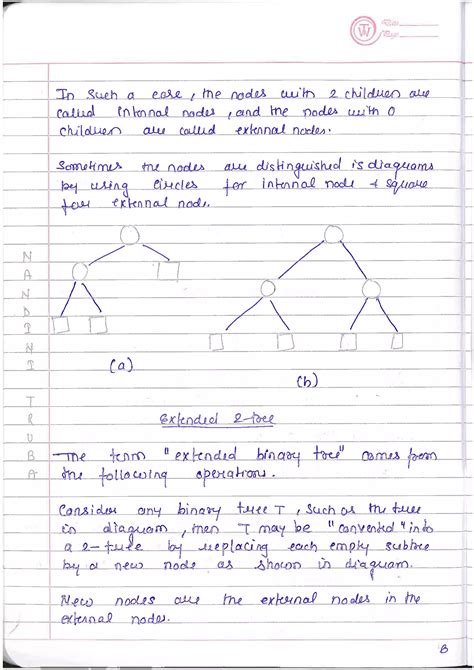 Date
Page
In such a case, the nodes with 2 children are
called internal nodes, and the nodes with 0
children are called external nodes.
Sometimes the nodes are distinguished is diagrams
by using circles for internal node & square
for external node.
NANDINI
TRUBA
(a)
(b)
Extended 2-tree
The term "extended binary tree" comes from
the following operation.
Consider any binary tree T, such as the tree
in diagram, then T may be "converted" into
a 2-tree by replacing each empty subtree
by a new node as shown in diagram.
New nodes are the external nodes in the
external nodes.